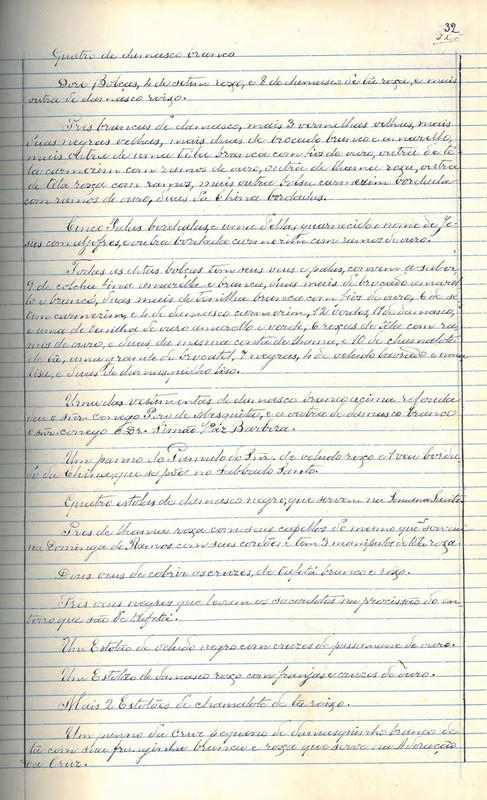 32
Quatro de damasco branco
Doze Bolças, 4 de setim roxo, e 8 de damasco de lã roxa, e mais
outra de damasco roixo.
Tres brancas de damasco, mais 3 vermelhas velhas, mais
duas negras velhas, mais duas de brocado branco e amarello,
mais outra de uma tela branca com fios de ouro, outra de té-
la carmezim com ramos de ouro, outra de lhama roxa, outra
de tela roxa com ramos, mais outra bolsa carmezim bordada
com ramos de ouro, duas da China bordadas.
Cinco Palas bordadas, e uma dellas guarnecida o nome de Je-
sus com aljofres, e outra bordada carmezim com ramos de ouro.
Todas as ditas bolças tem seus veus e palas, convem a saber,
9 de colcha fina amarella e branca, duas mais de brocado amarel-
lo e branco, duas mais de tenilha branca com fios de ouro, 6 de se-
tim carmezim, e 4 de damasco carmezim, 12 verdes, 11 de damasco,
e uma de tenilha de ouro amarello e verde, 6 roxas de tela com ra-
mos de ouro, e duas da mesma cor de lhama, e 10 de chamalote
de lã, uma grande de brocatel, 7 negras, 4 de veludo lavrado e uma
lisa, e duas de damasquilho liso.
Uma das vestimentas de damasco branco acima referida
deu o snr. conego Pero de Mesquita, e a outra de damasco branco
o snr. conego Dr. Simão Vaz Barbosa.
Um panno do Tumulo do Snr. de veludo roxo e 1 veu borda-
do da China, que se põe no Sabbado Santo.
Quatro estolas de damasco negro, que servem na Semana Santa.
Tres de lhama roxa com seus capellos do mesmo que servem
na Dominga de Ramos com seus cordões e tem 3 manipulos de tela roxa.
Dous veus de cobrir as cruzes, de tafetá branco e roxo.
Tres veus negros que levam os sacerdotes na procissão do en-
terro que são de tafetá.
Um Estolão de veludo negro com cruzes de passamane de ouro.
Um Estolão de damasco roxo com franjas e cruzes de ouro.
Mais 2 Estolões de chamalote de lã roixo.
Um panno da Cruz pequeno de damasquinho branco de
lã com sua franginha branca e roxa que serve na Adoração
da Cruz.